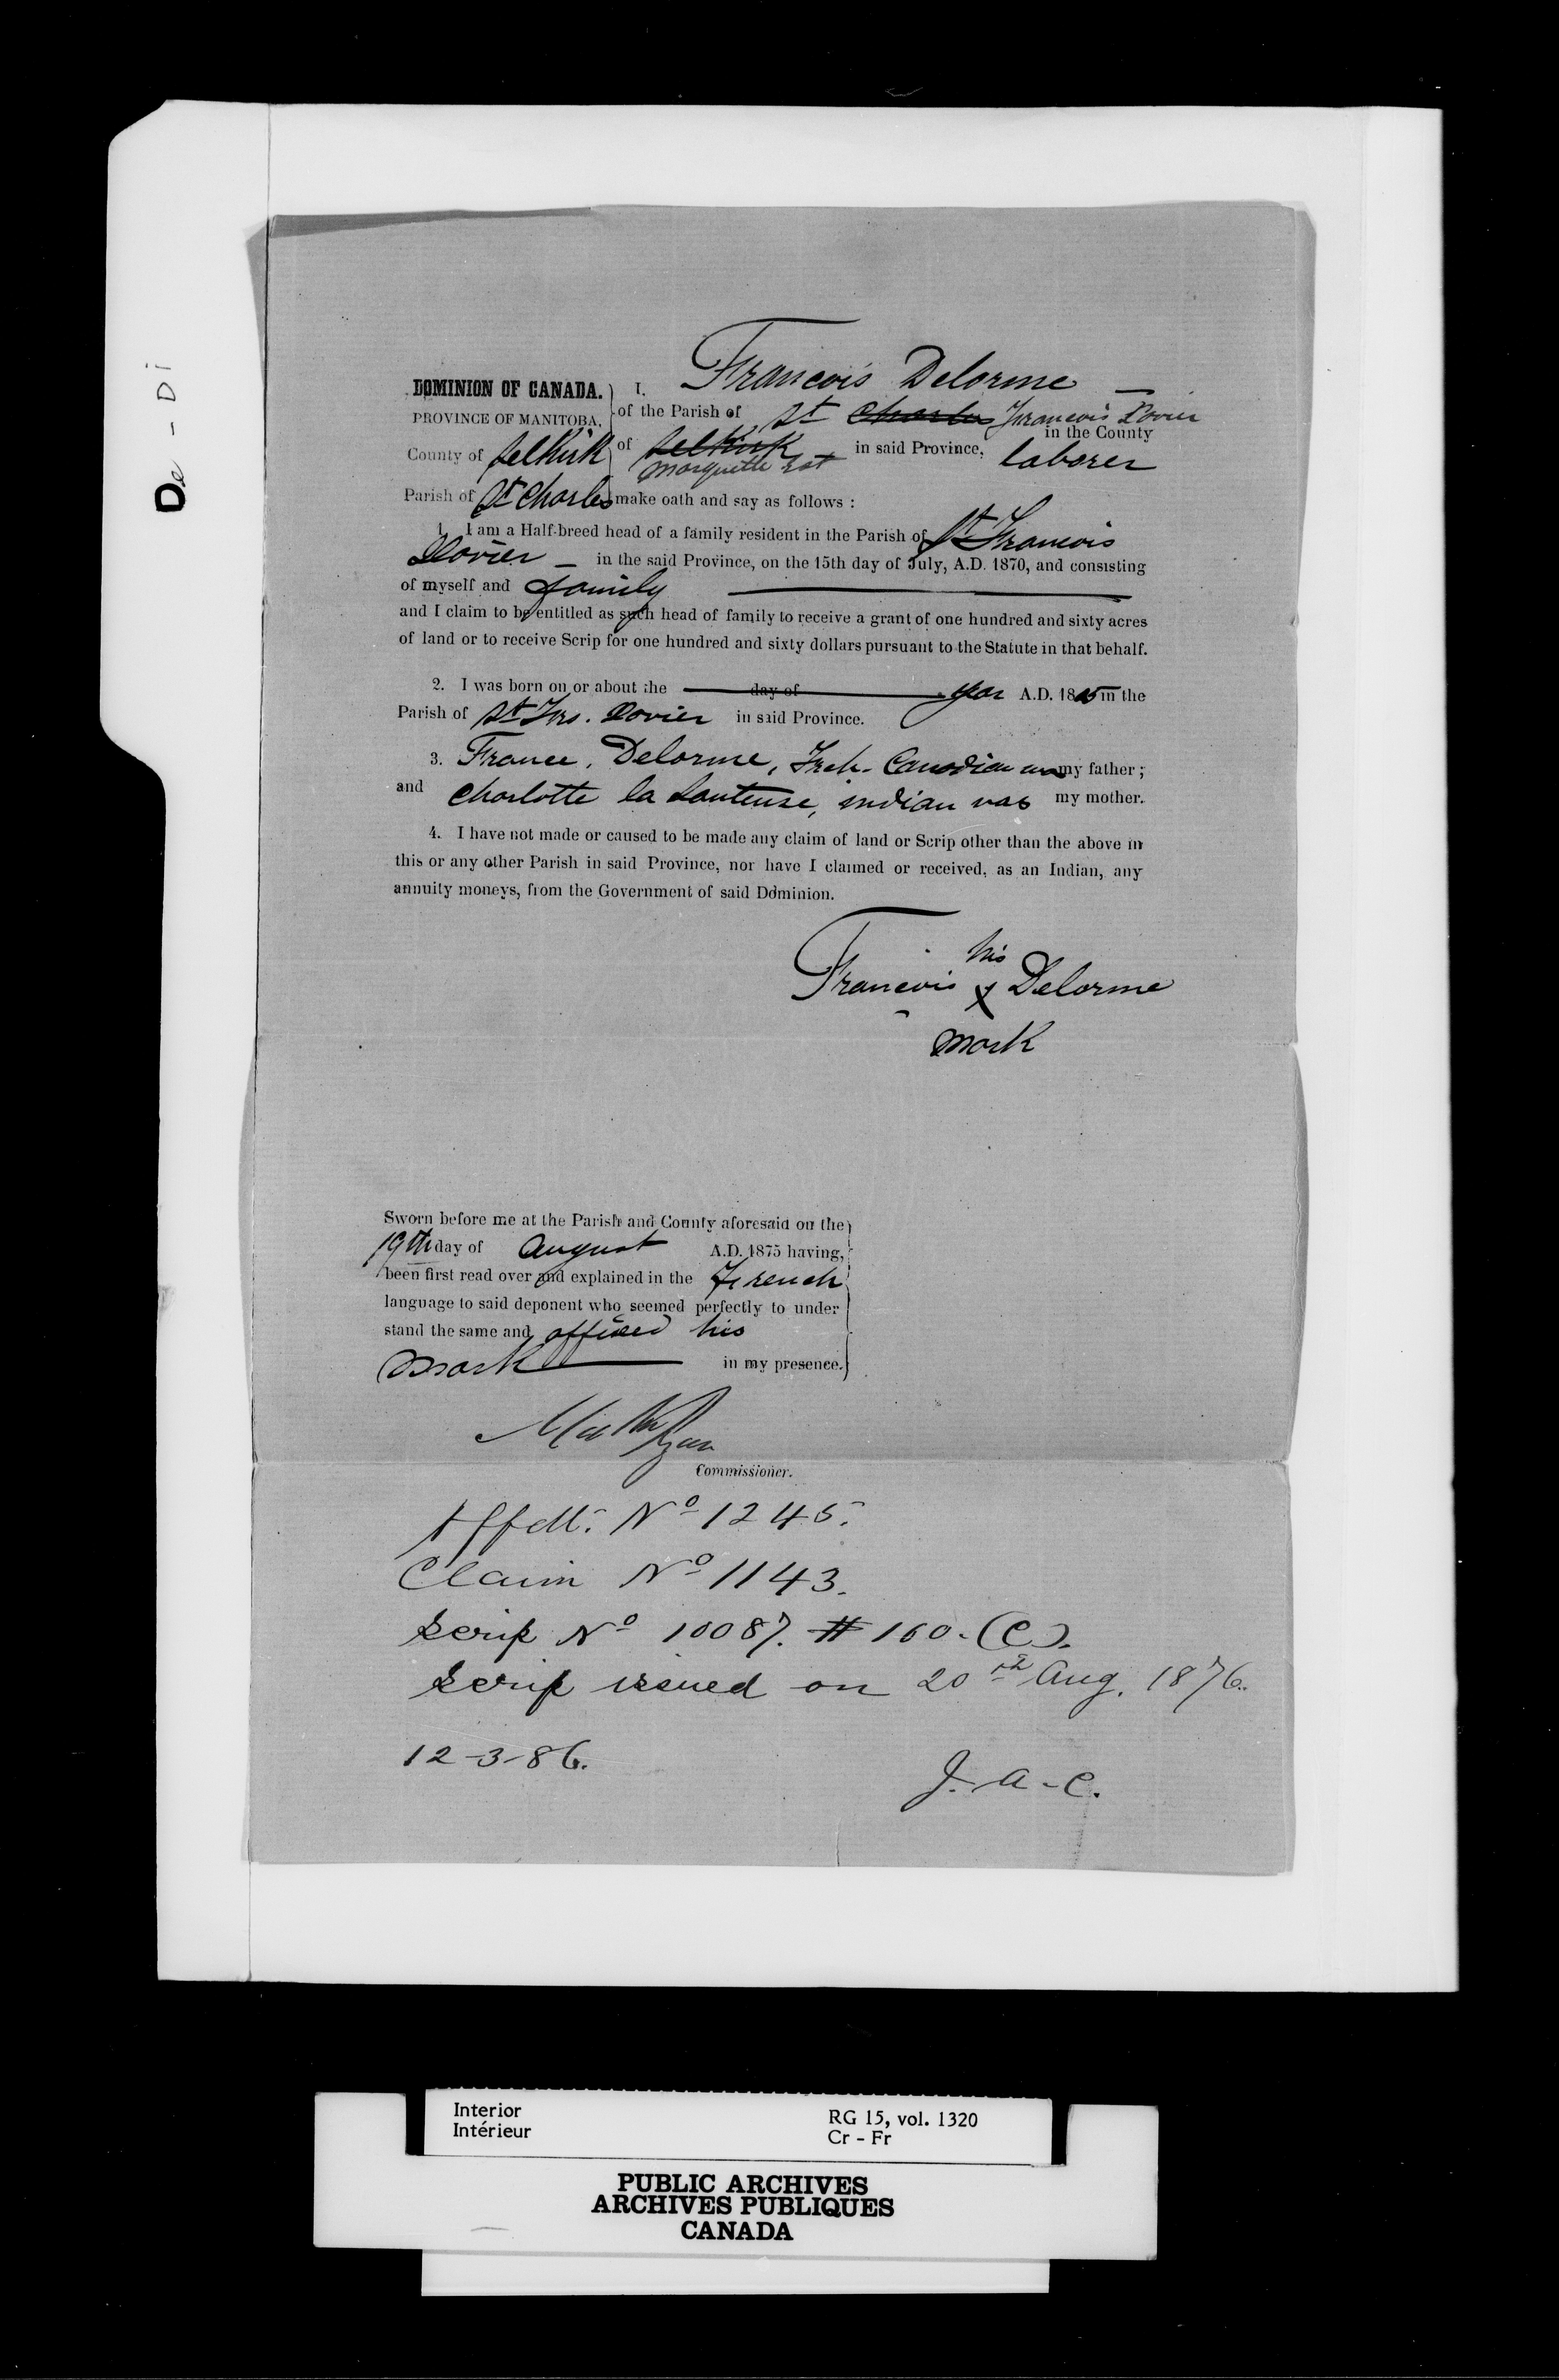 De - Di
DOMINION OF CANADA.
PROVINCE OF MANITOBA,
County of Selkirk
Parish of St Charles
I, Francois Delorme
of the Parish of St Charles Francois Xovier
in the County
of Selkirk in said Province, laborer
Marquette Est
make oath and say as follows :
1. I am a Half-breed head of a family resident in the Parish of St Francois
Xovier in the said Province, on the 15th day of July, A.D. 1870, and consisting
of myself and family
and I claim to be entitled as such head of family to receive a grant of one hundred and sixty acres
of land or to receive Scrip for one hundred and sixty dollars pursuant to the Statute in that behalf.
2. I was born on or about the day of year A.D. 18 in the
Parish of St Frs. Xovier in said Province.
3. France. Delorme, Frch. Canadian was my father ;
and Charlotte la Sauteuse, indian was my mother.
4. I have not made or caused to be made any claim of land or Scrip other than the above in
this or any other Parish in said Province, nor have I claimed or received, as an Indian, any
annuity moneys, from the Government of said Dominion.
his
Francois x Delorme
mark
Sworn before me at the Parish and County aforesaid on the
19th day of August A.D. 1875 having,
been first read over and explained in the French
language to said deponent who seemed perfectly to under
stand the same and affixed his
mark in my presence.
Ryan
Commissioner.
Affdt. No 1245.
Claim No 1143.
Scrip No 10087. # 160. (C).
Scrip issued on 20th Aug. 1876.
12-3-86.
J. A. C.
Interior
Intérieur
RG 15, vol. 1320
Cr - Fr
PUBLIC ARCHIVES
ARCHIVES PUBLIQUES
CANADA